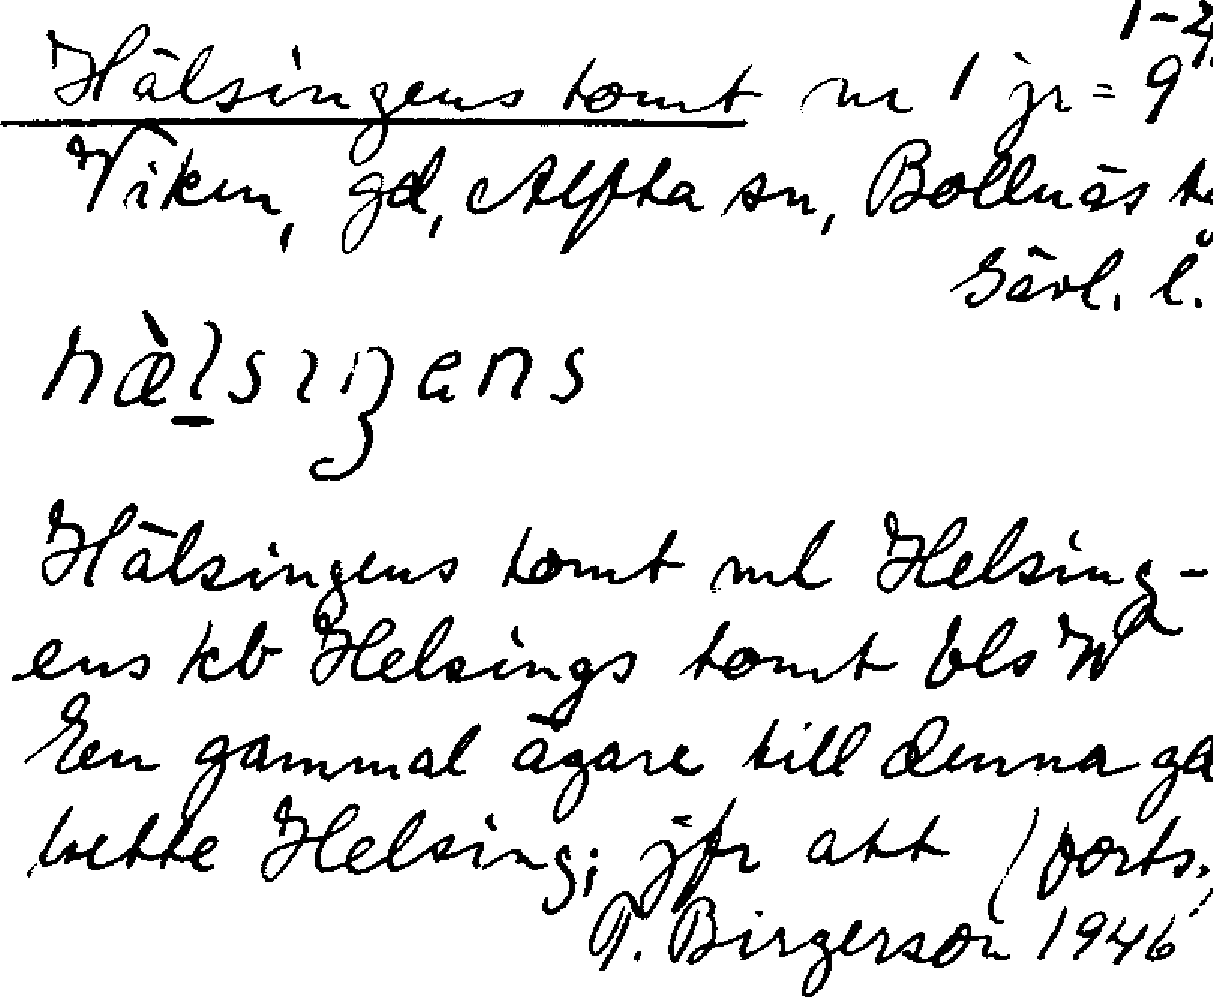 1-2
Hälsingens tomt nr 1 jr = 9
Viken, gd, Alfta sn, Bollnäs
Gävl. l.
hæ̀lsıŋens
Hälsingens tomt ml Helsing-
ens kb Helsings tomt bls
En gammal ägare till denna gd
hette Helsing; jfr att (forts.)
P. Birgerson 1946